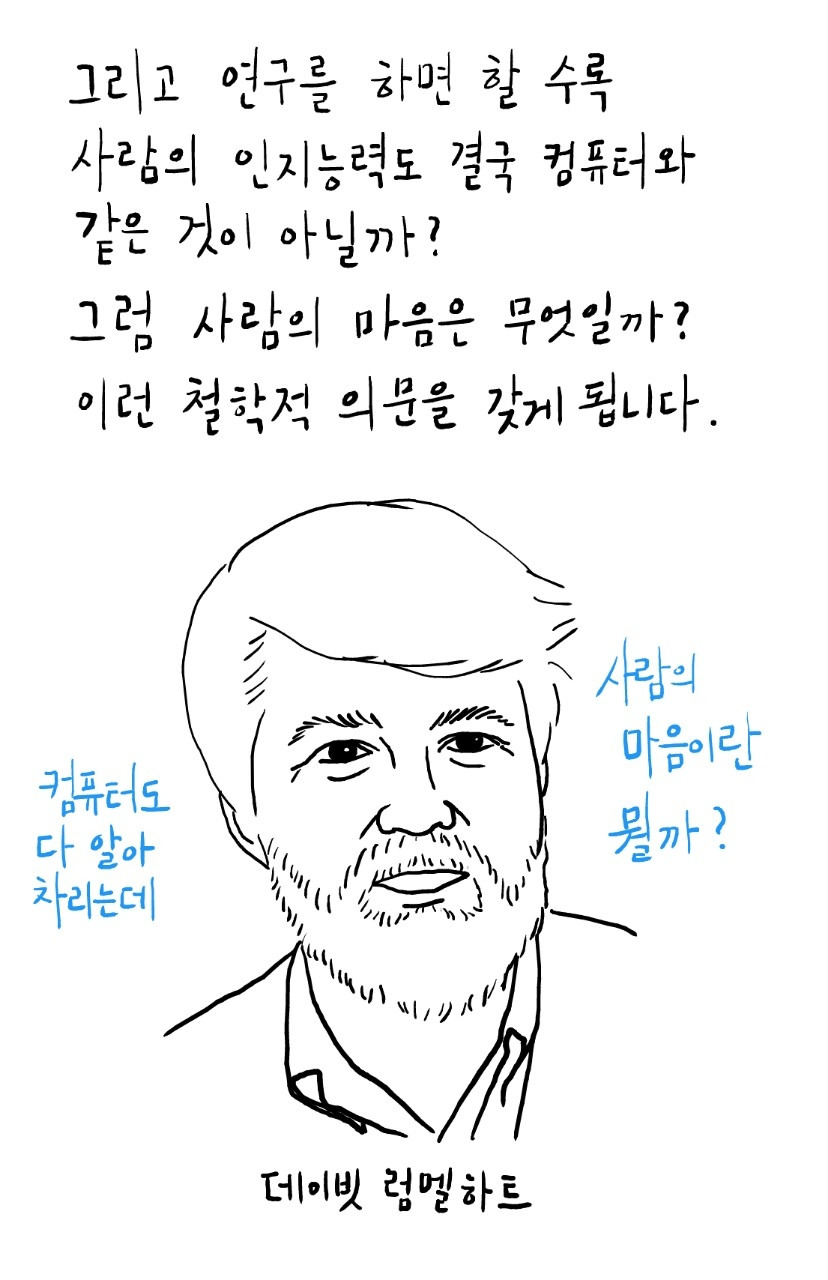 그리고 연구를 하면 할 수록
사람의 인지능력도 결국 컴퓨터와
같은 것이 아닐까?
그럼 사람의 마음은 무엇일까?
이런 철학적 의문을 갖게 됩니다.
컴퓨터도
다 알아
차리는데
사람의
마음이란
뭘까?
데이빗 럼멜하트